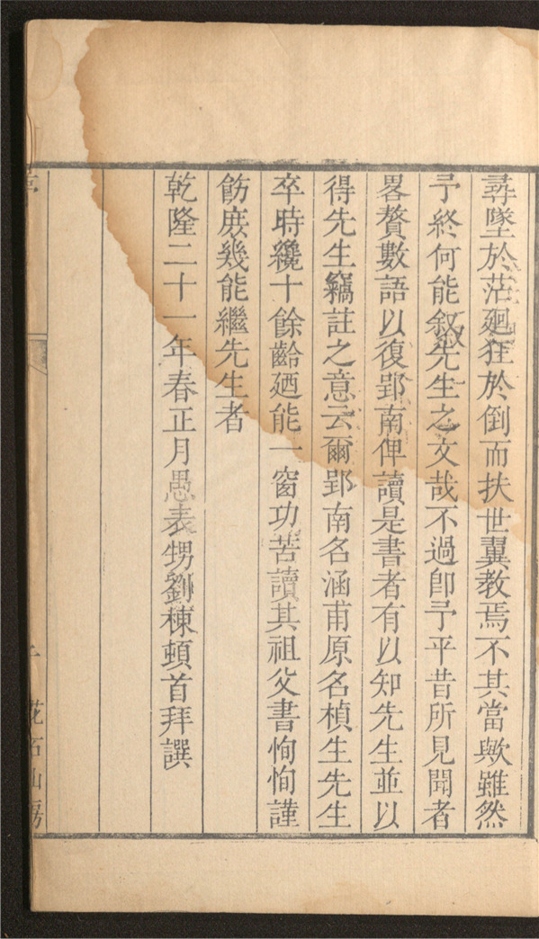 尋墜於茫廻狂於倒而扶世翼教焉不其當歟雖然
予終何能叙先生之文哉不過卽予平昔所見聞者
畧贅數語以復郢南俾讀是書者有以知先生並以
得先生竊註之意云爾郢南名涵甫原名楨生先生
卒時纔十餘齡廼能一窗功苦讀其祖父書恂恂謹
飭庶幾能繼先生者
乾隆二十一年春正月愚表甥劉棟頓首拜譔
花石山房